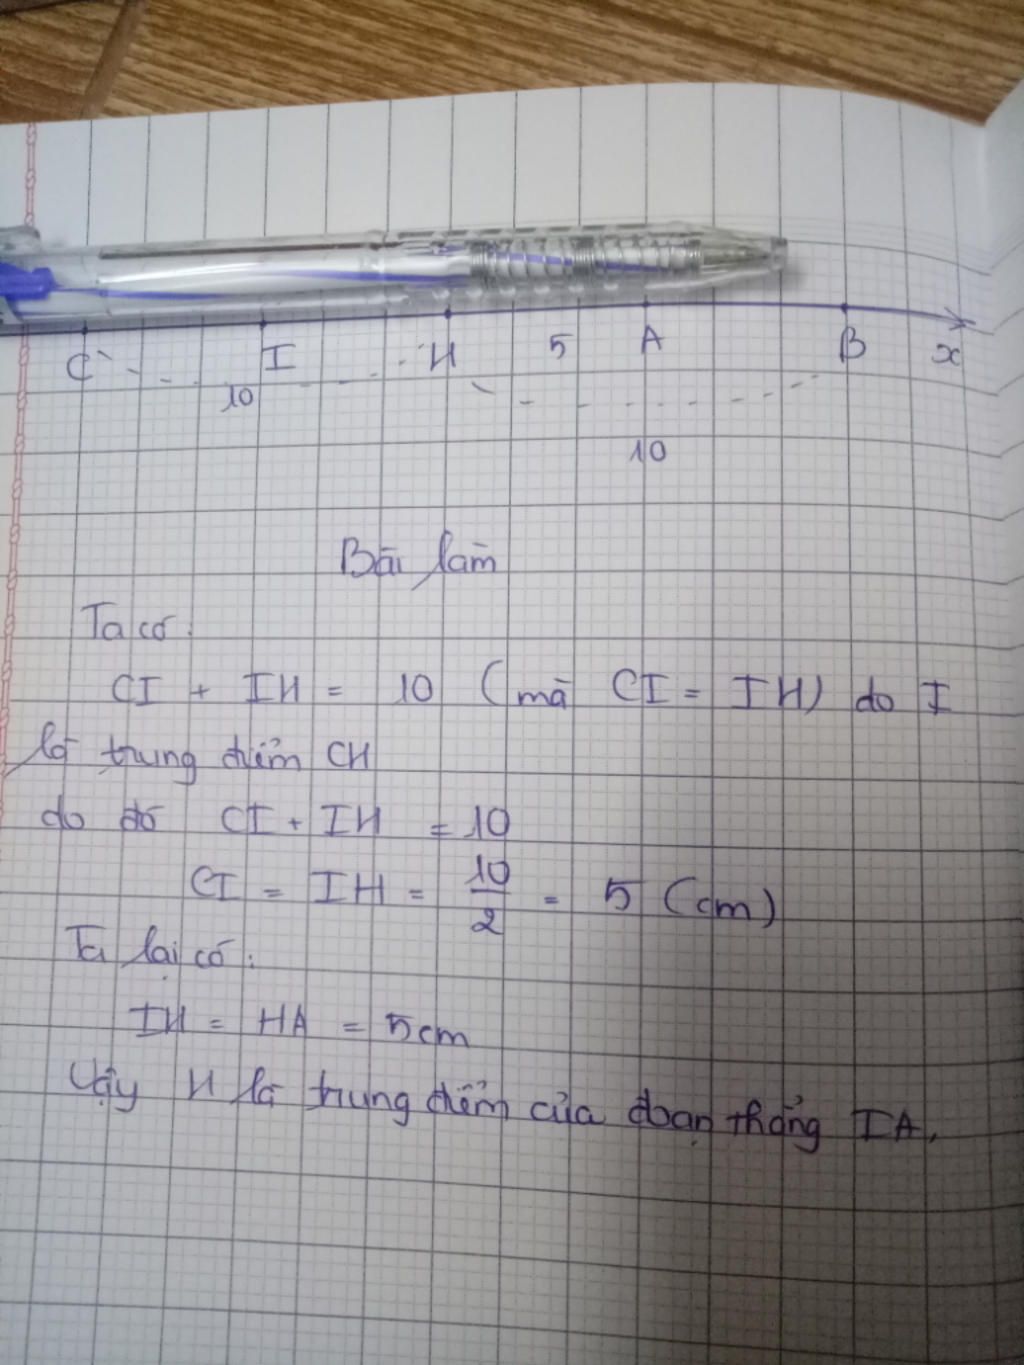 C I H 5 A B x
10
10
Bài làm
Ta có:
CI + IH = 10 (mà CI = IH) do I
là trung điểm CH
do đó CI + IH = 10
CI = IH = 10/2 = 5 (cm)
Ta lại có:
IH = HA = 5cm
Vậy H là trung điểm của đoạn thẳng IA.